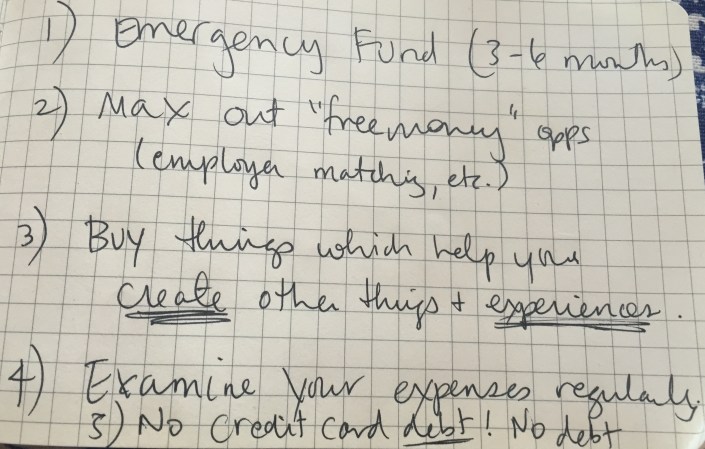 1) Emergency Fund (3-6 months)
2) Max out "free money" opps
(employer matching, etc.)
3) Buy things which help you
create other things + experiences.
4) Examine your expenses regularly.
5) No credit card debt! No debt